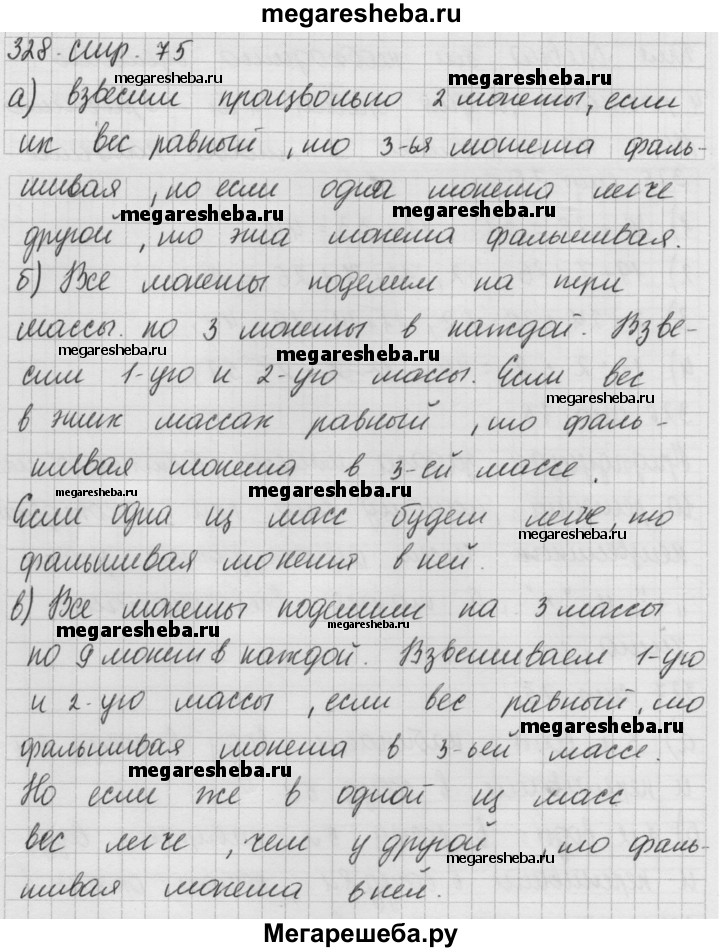 megaresheba.ru
328. стр. 75
megaresheba.ru
megaresheba.ru
а) взвесим произвольно 2 монеты, если
их вес равный, то 3-ья монета фаль-
шивая, но если одна монета легче
megaresheba.ru
megaresheba.ru
другой, то эта монета фальшивая.
б) Все монеты поделим на три
массы. по 3 монеты в каждой. Взве-
megaresheba.ru
megaresheba.ru
сим 1-ую и 2-ую массы. Если вес
megaresheba.ru
в этих массах равный, то фаль-
шивая монета в 3-ей массе.
megaresheba.ru
megaresheba.ru
Если одна из масс будет легче, то
megaresheba.ru
фальшивая монета в ней.
в) Все монеты поделим на 3 массы
megaresheba.ru
megaresheba.ru
по 9 монет в каждой. Взвешиваем 1-ую
и 2-ую массы, если вес равный, то
megaresheba.ru
фальшивая монета в 3-ьей массе.
megaresheba.ru
Но если же в одной из масс
вес легче, чем у другой, то фаль-
megaresheba.ru
шивая монета в ней.
Мегарешеба.ру